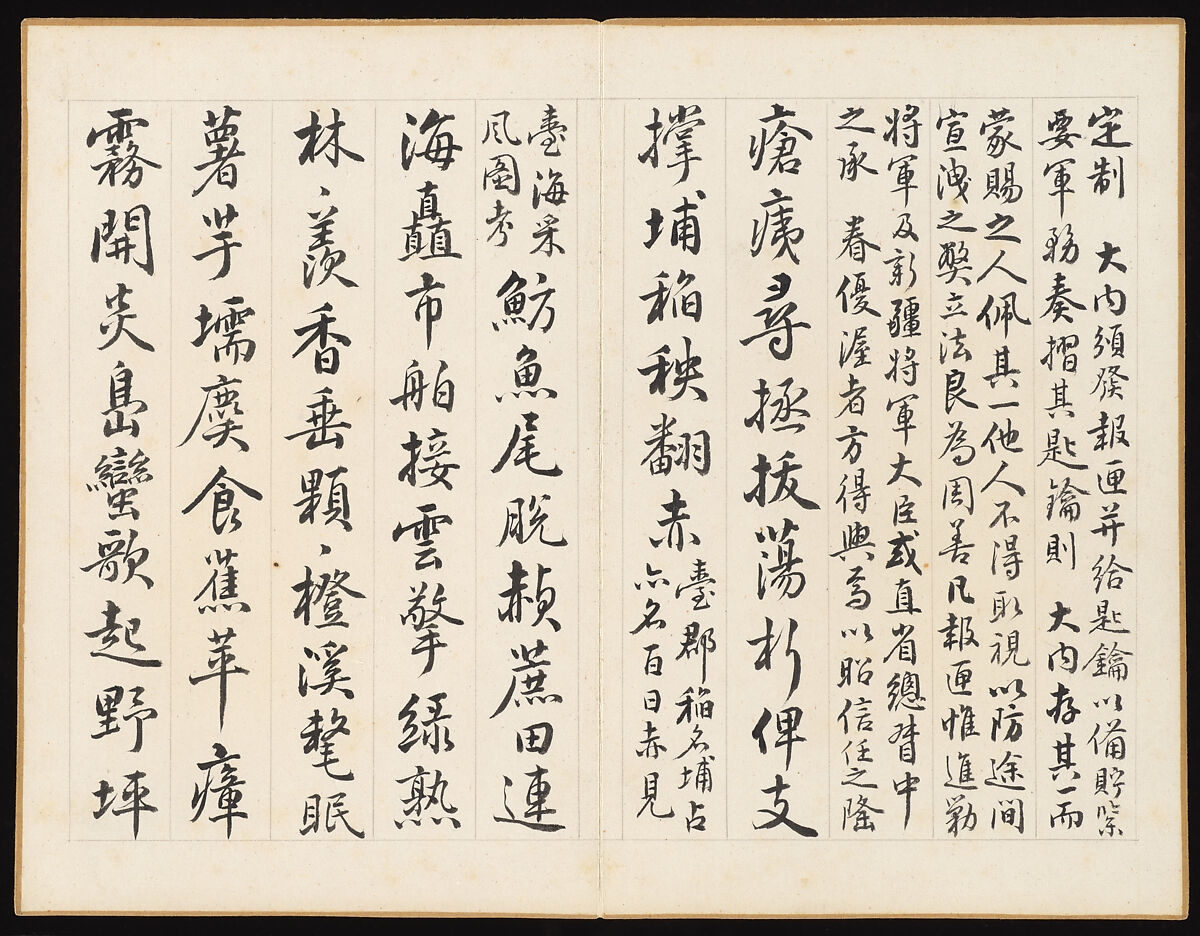 定制　大內頒發報匣并給匙鑰以備貯緊
要軍務奏摺其匙鑰則　大內存其一而
蒙賜之人佩其一他人不得取視以防途間
宣洩之弊立法良為周善凡報匣惟進勦
將軍及新疆將軍大臣或直省總督中
之承　眷優渥者方得與焉以昭信任之隆
瘡痍尋拯拔蕩析俾支
撐埔稻秧翻赤
臺郡稻名埔占
亦名百日赤見
臺海采
風圖考
魴魚尾脫赬蔗田連
海矗市舶接雲擎綠熟
林、羨香垂顆、橙溪氂眠
薯芋壖麌食蕉苹瘴
霧開炎島蠻歌起野坪